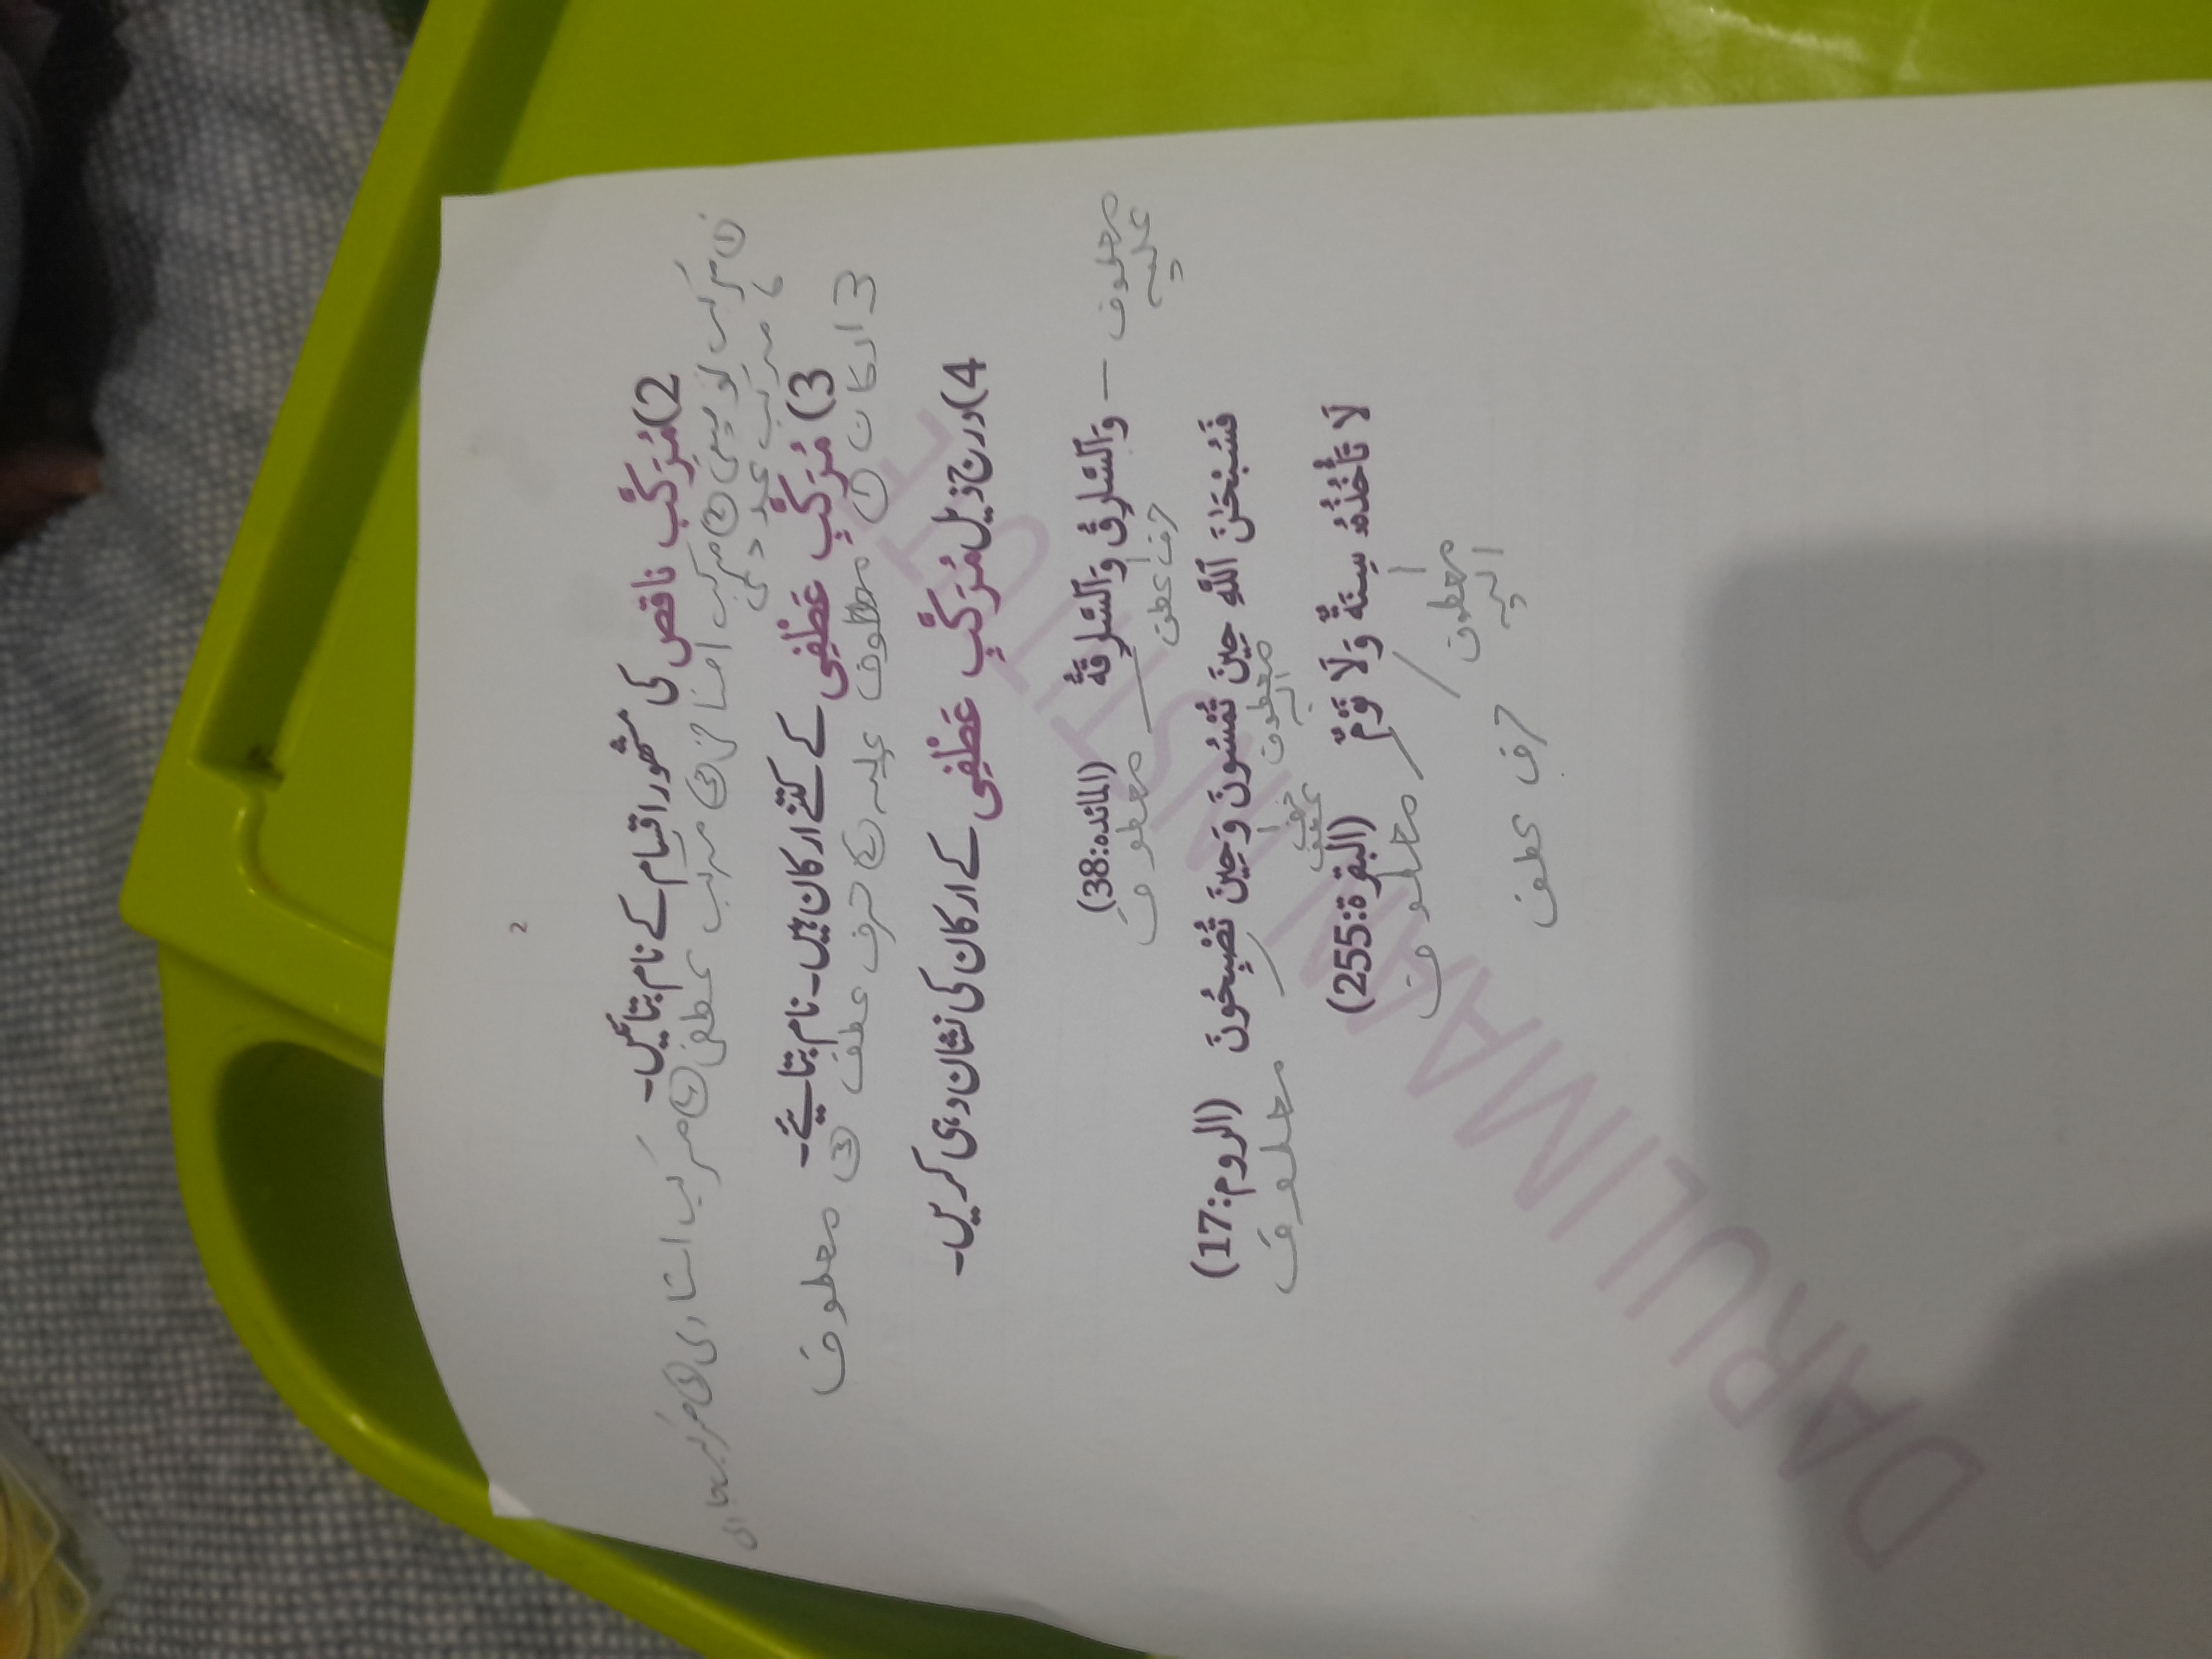 2
2)مُرَكَّبِ ناقص کی مشہور اقسام کے نام بتائیں-
① مرکب توصیفی ② مرکب اضافی ③ مرکب عطفی ④ مرکب اشاری ⑤ مرکب جاری
⑥ مرکب عددی
3) مُرَكَّبِ عَطْفِی کے کتنے ارکان ہیں- نام بتائیے-
3 ارکان ① معطوف علیہ ② حرف عطف ③ معطوف
4)درج ذیل مُرَكَّبِ عَطْفِی کے ارکان کی نشان دہی کریں-
وَٱلسَّارِقُ وَٱلسَّارِقَةُ (المائدہ:38)
معطوف علیہ
حرف عطف
معطوف
فَسُبْحَٰنَ ٱللَّهِ حِينَ تُمْسُونَ وَحِينَ تُصْبِحُونَ (الروم:17)
معطوف الیہ
حرف عطف
معطوف
لَا تَأْخُذُهُۥ سِنَةٌ وَلَا نَوْمٌ (البقرة:255)
معطوف الیہ
معطوف
حرف عطف
DARULIMAANISHTIBLE